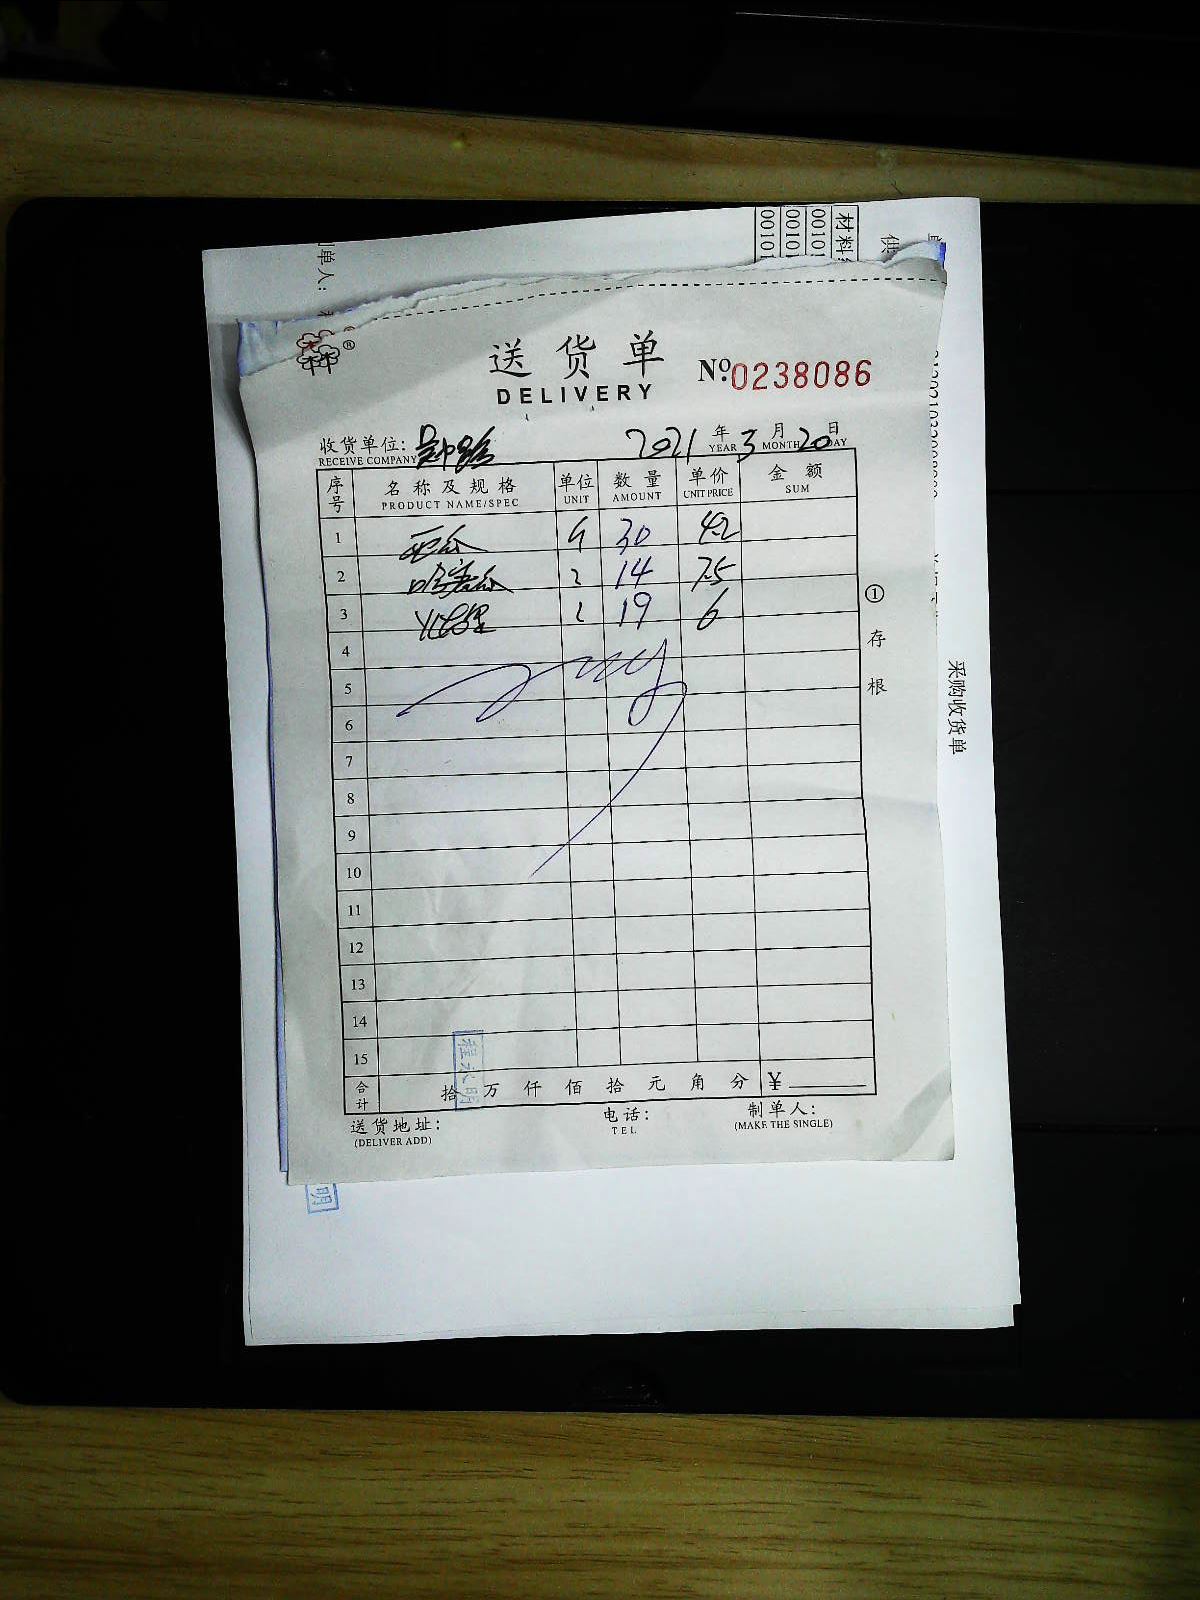 材料
供
00101
00101
00101
制单人:
®
送货单
DELIVERY
No:0238086
收货单位:
RECEIVE COMPANY
2021 年 3 月 20 日
YEAR MONTH DAY
序号 名称及规格 单位 数量 单价 金额
PRODUCT NAME/SPEC UNIT AMOUNT UNIT PRICE SUM
1 西瓜 斤 30 4.2
2 哈密瓜 14 7.5
3 19 6
4
5
6
7
8
9
10
11
12
13
14
15
合计 拾 万 仟 佰 拾 元 角 分 ¥
送货地址: 电话: 制单人:
(DELIVER ADD) TEL (MAKE THE SINGLE)
① 存根
采购收货单
程永明
明